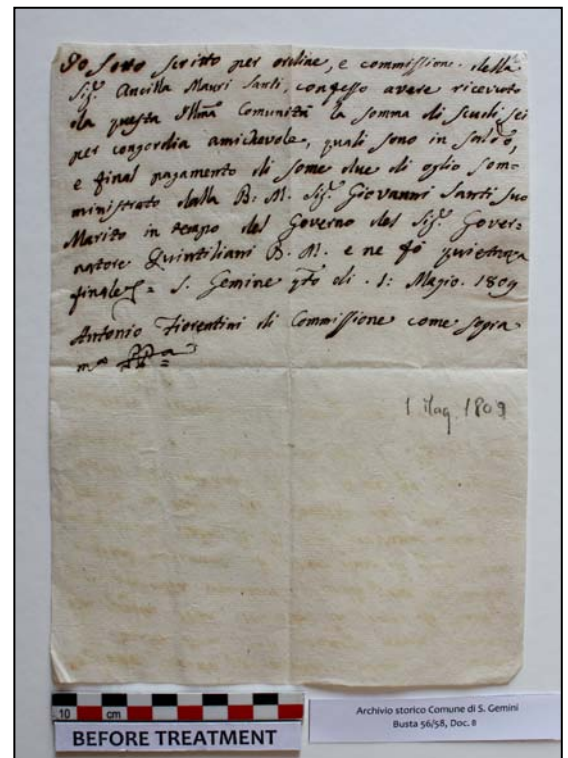 Io Sotto Scritto per ordine, e commissione della
Sig.ª Ancilla Mauri Santi, confesso avere ricevuto
da questa Ill̃ma Comunità la somma di scudi sei
per concordia amichevole, quali sono in saldo,
e final pagamento di some due di oglio som-
ministrato dalla B: M. Sig.r Giovanni Santi suo
Marito in tempo del Governo del Sig.r Gover-
natore Quintiliani B. M. e ne fò quietanza
finale = S. Gemine q̃to di . 1: Magio . 1809
Antonio Fiorentini di Commissione come sopra
1 Mag. 1809
10 cm
BEFORE TREATMENT
Archivio storico Comune di S. Gemini
Busta 56/58, Doc. 8